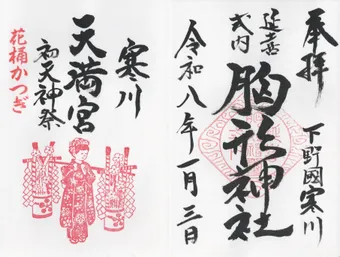 奉拝
下野國寒川
延喜式内
胸形神社
令和八年一月三日
寒川
天満宮
初天神祭
花桶かつぎ